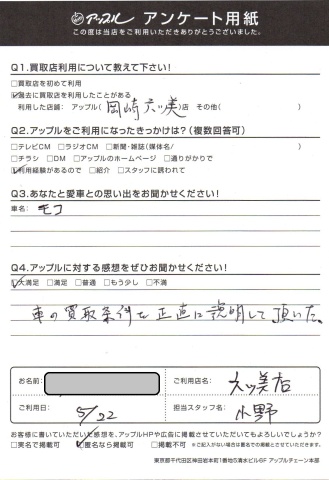 アップル アンケート用紙
この度は当店をご利用いただきありがとうございました。
Q1.買取店利用について教えて下さい!
□買取店を初めて利用
☑過去に買取店を利用したことがある
利用した店舗: アップル(岡崎六ッ美)店 その他( )
Q2.アップルをご利用になったきっかけは?(複数回答可)
□テレビCM □ラジオCM □新聞・雑誌(媒体名/ )
□チラシ □DM □アップルのホームページ □通りがかりで
☑利用経験があるので □紹介 □スタッフに誘われて
Q3.あなたと愛車との思い出をお聞かせください!
車名: モコ
Q4.アップルに対する感想をぜひお聞かせください!
☑大満足 □満足 □普通 □もう少し □不満
車の買取条件を正直に説明して頂いた。
お名前:
ご利用店名: 六ッ美店
ご利用日: 5/22
担当スタッフ名: 小野
お客様に書いていただいた感想を、アップルHPや広告に掲載させていただいてもよろしいでしょうか?
□実名で掲載可 ☑匿名なら掲載可 □掲載不可 ※ご記入がない場合は匿名での掲載とさせていただきます。
東京都千代田区神田岩本町1番地5清水ビル6F アップルチェーン本部